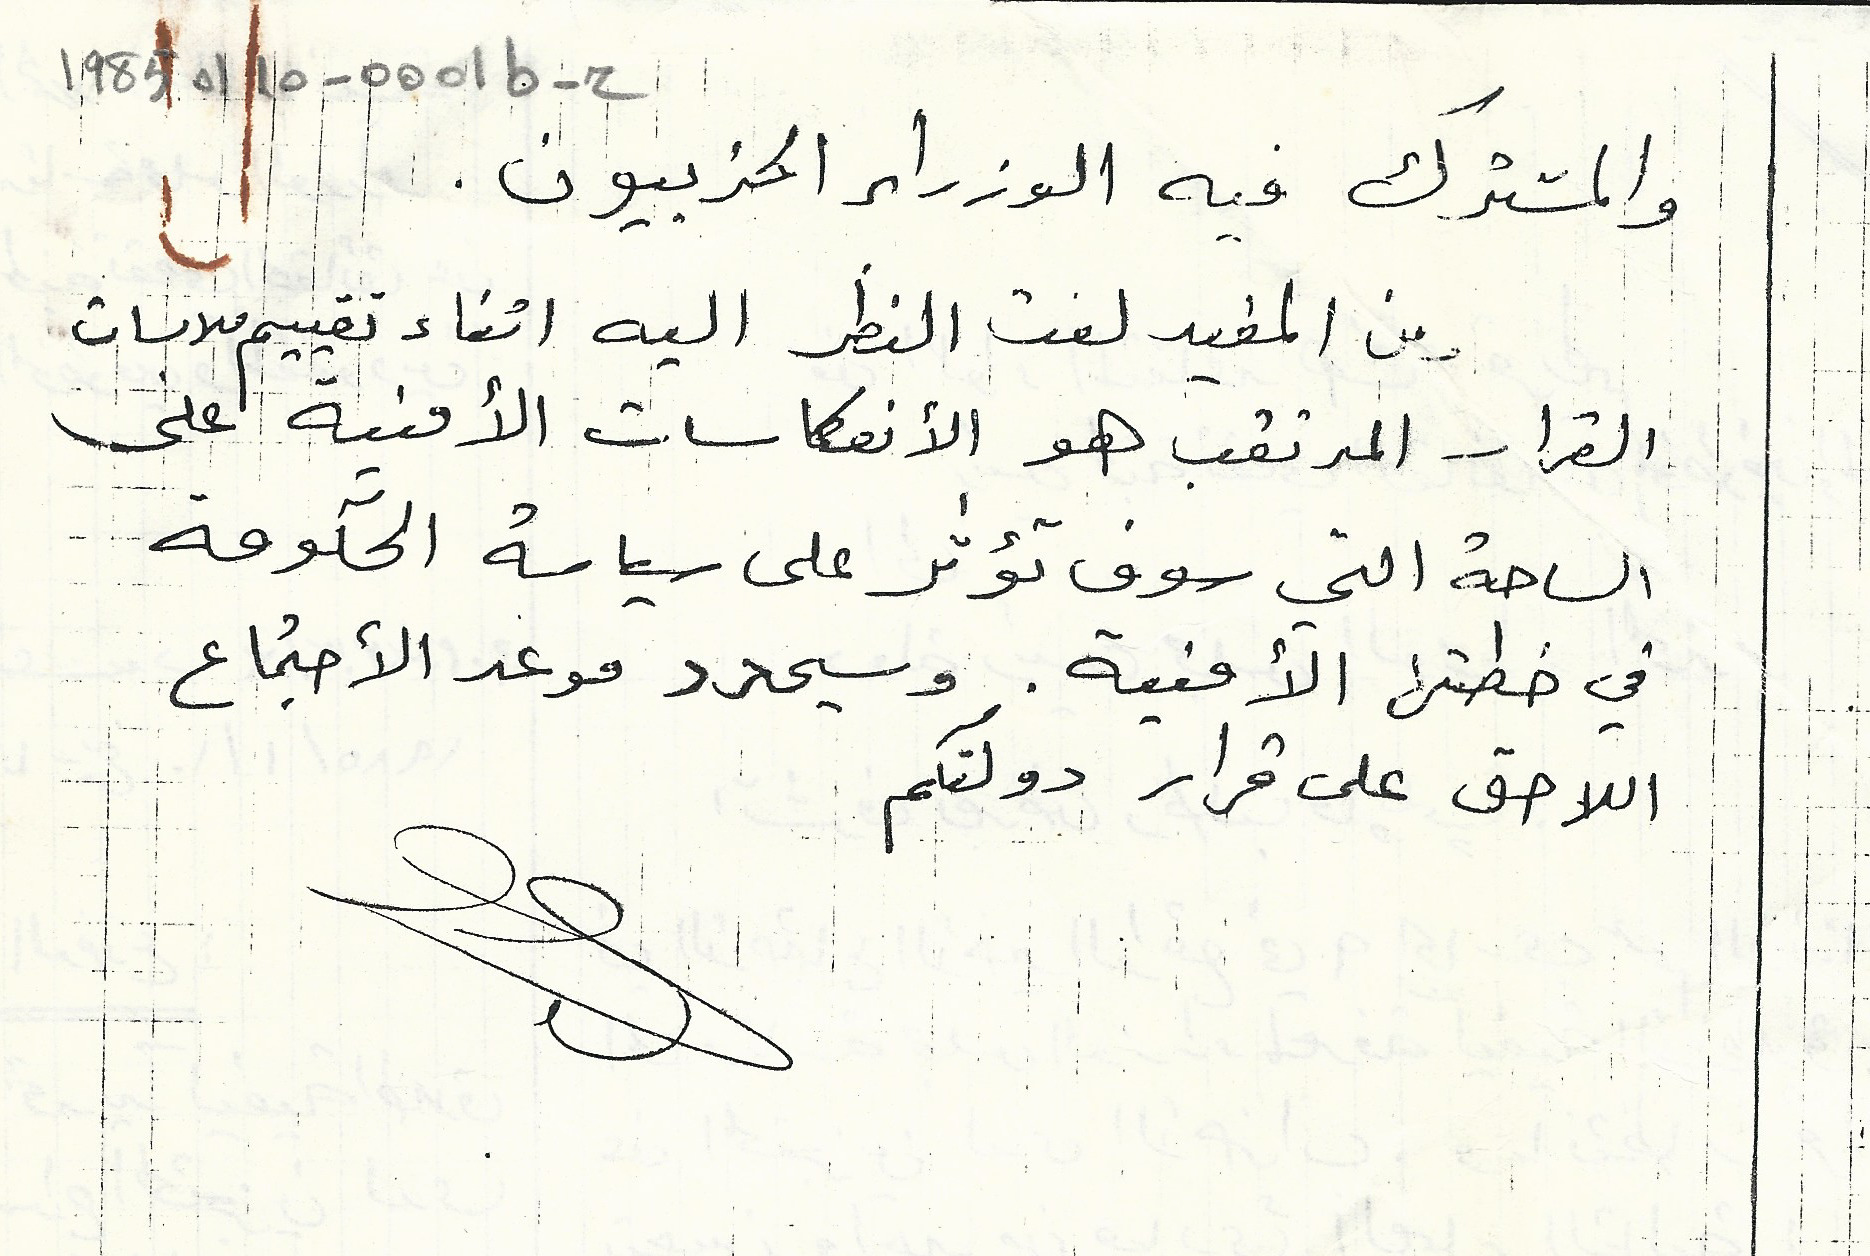 19850110-0001b-2
والمشترك فيه الوزراء الحزبيون .
من المفيد لفت النظر اليه اثناء تقييم ملابسات
القرار المرتقب هو الأنعكاسات الأمنية على
الساحة التي سوف تؤثر على سياسة الحكومة
في خطتها الأمنية . وسيحدد موعد الأجتماع
اللاحق على قرار دولتكم